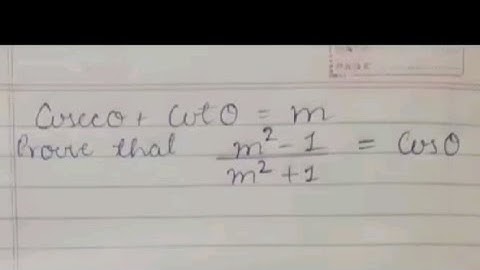 Cosecθ + Cotθ = m
Prove that m² - 1 / m² + 1 = Cosθ